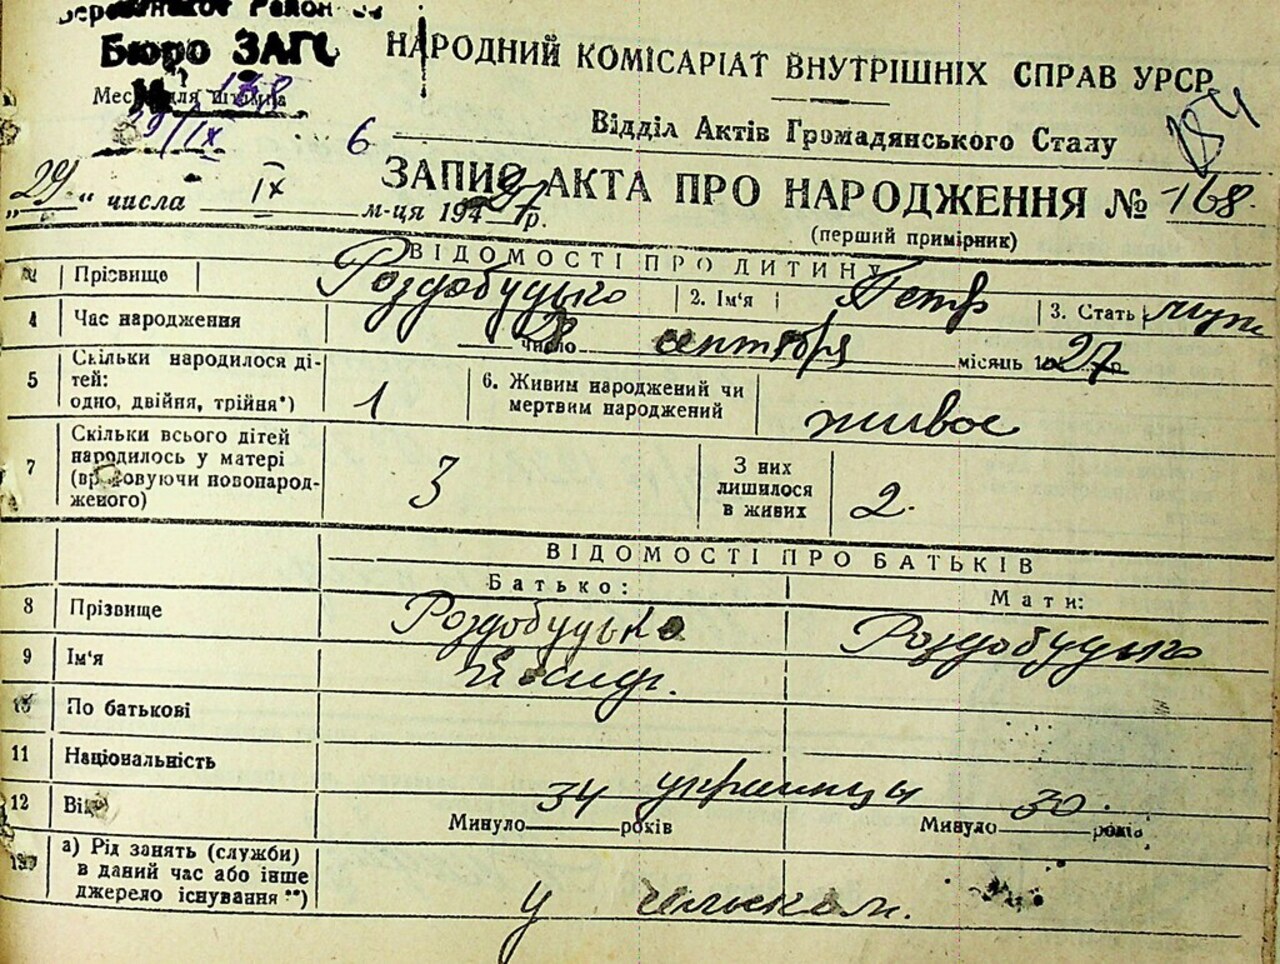 Бюро ЗАГС
НАРОДНИЙ КОМІСАРІАТ ВНУТРІШНІХ СПРАВ УРСР
Місце для штампа 138
29/IX
Відділ Актів Громадянського Стану
6
ЗАПИС АКТА ПРО НАРОДЖЕННЯ № 168.
„29“ числа IX м-ця 194 27 р.
(перший примірник)
ВІДОМОСТІ ПРО ДИТИНУ
Прізвище Роздобудько 2. Ім'я Петр 3. Стать муж
4 Час народження 28 число сентября місяць 27 р.
5 Скільки народилося ді-
тей:
одно, двійня, трійня*) 1 6. Живим народжений чи
мертвим народжений живое
7 Скільки всього дітей
народилось у матері
(враховуючи новонарод-
женого) 3 З них
лишилося
в живих 2.
ВІДОМОСТІ ПРО БАТЬКІВ
Батько: Мати:
8 Прізвище Роздобудько Роздобудько
9 Ім'я
10 По батькові
11 Національність украинцы
12 Вік Минуло 34 років Минуло 30. років
а) Рід занять (служби)
в даний час або інше
джерело існування**)